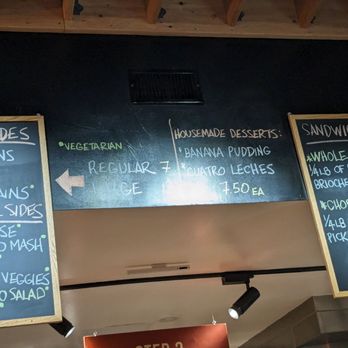 DES
NS
AINS
SIDES
SE
D MASH
VEGGIES
O SALAD
*VEGETARIAN
REGULAR 7
GE
HOUSEMADE DESSERTS:
*BANANA PUDDING
*CUATRO LECHES
7.50 EA
SANDWIC
*WHOLE
1/4 LB OF
BRIOCHE
*CHO
1/4 LB
PICK
STEP 2